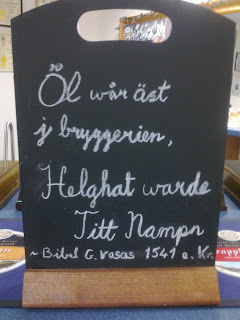 Öl wår äst
j bryggerien,
Helghat warde
Titt Nampn
~ Bibel G. Vasas 1541 e. Kr.